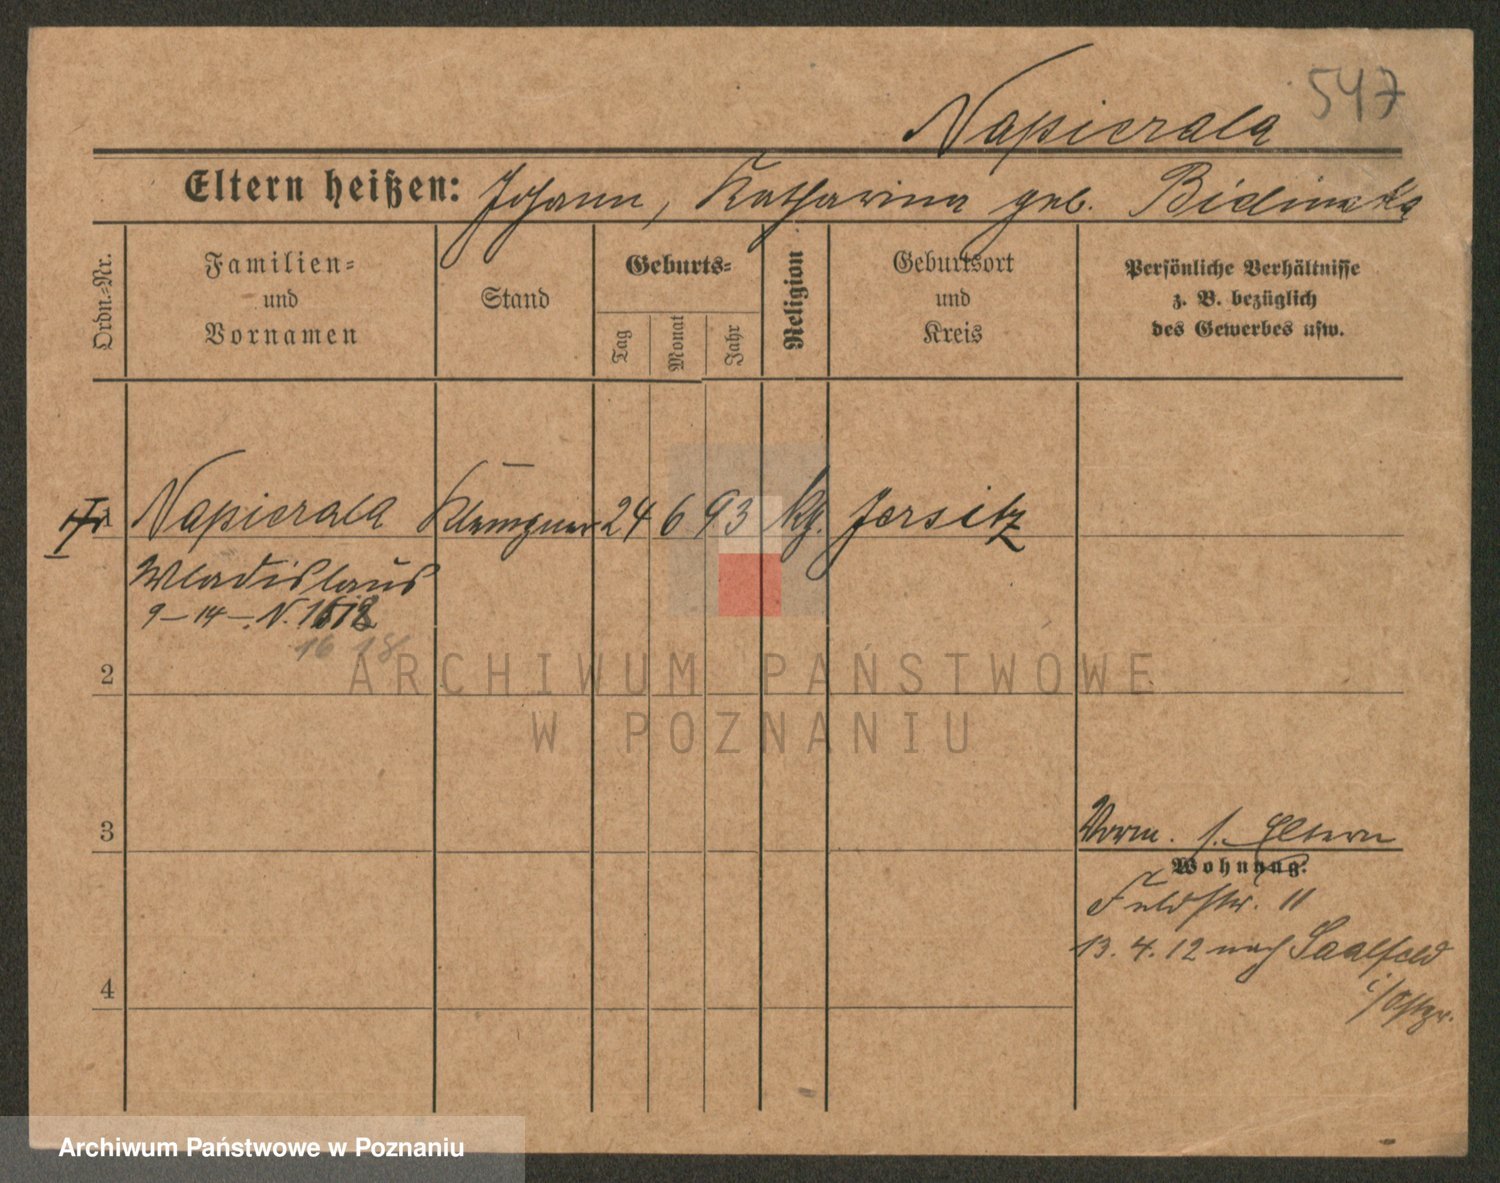 547
Napierala
Eltern heißen: Johann, Katharina geb.
Ordn.-Nr.
Familien-
und
Vornamen
Stand
Geburts-
Tag
Monat
Jahr
Religion
Geburtsort
und
Kreis
Persönliche Verhältnisse
z. B. bezüglich
des Gewerbes usw.
Napierala Klempner 24 6 93 kg. Jersitz
Wladislaus
9-14-N.
16 18
2
ARCHIWUM PAŃSTWOWE
W POZNANIU
3
Vorm. s. Eltern
Wohnung.
Feldstr. 11
13. 4. 12 nach Saalfeld
i/Ostpr.
4
Archiwum Państwowe w Poznaniu